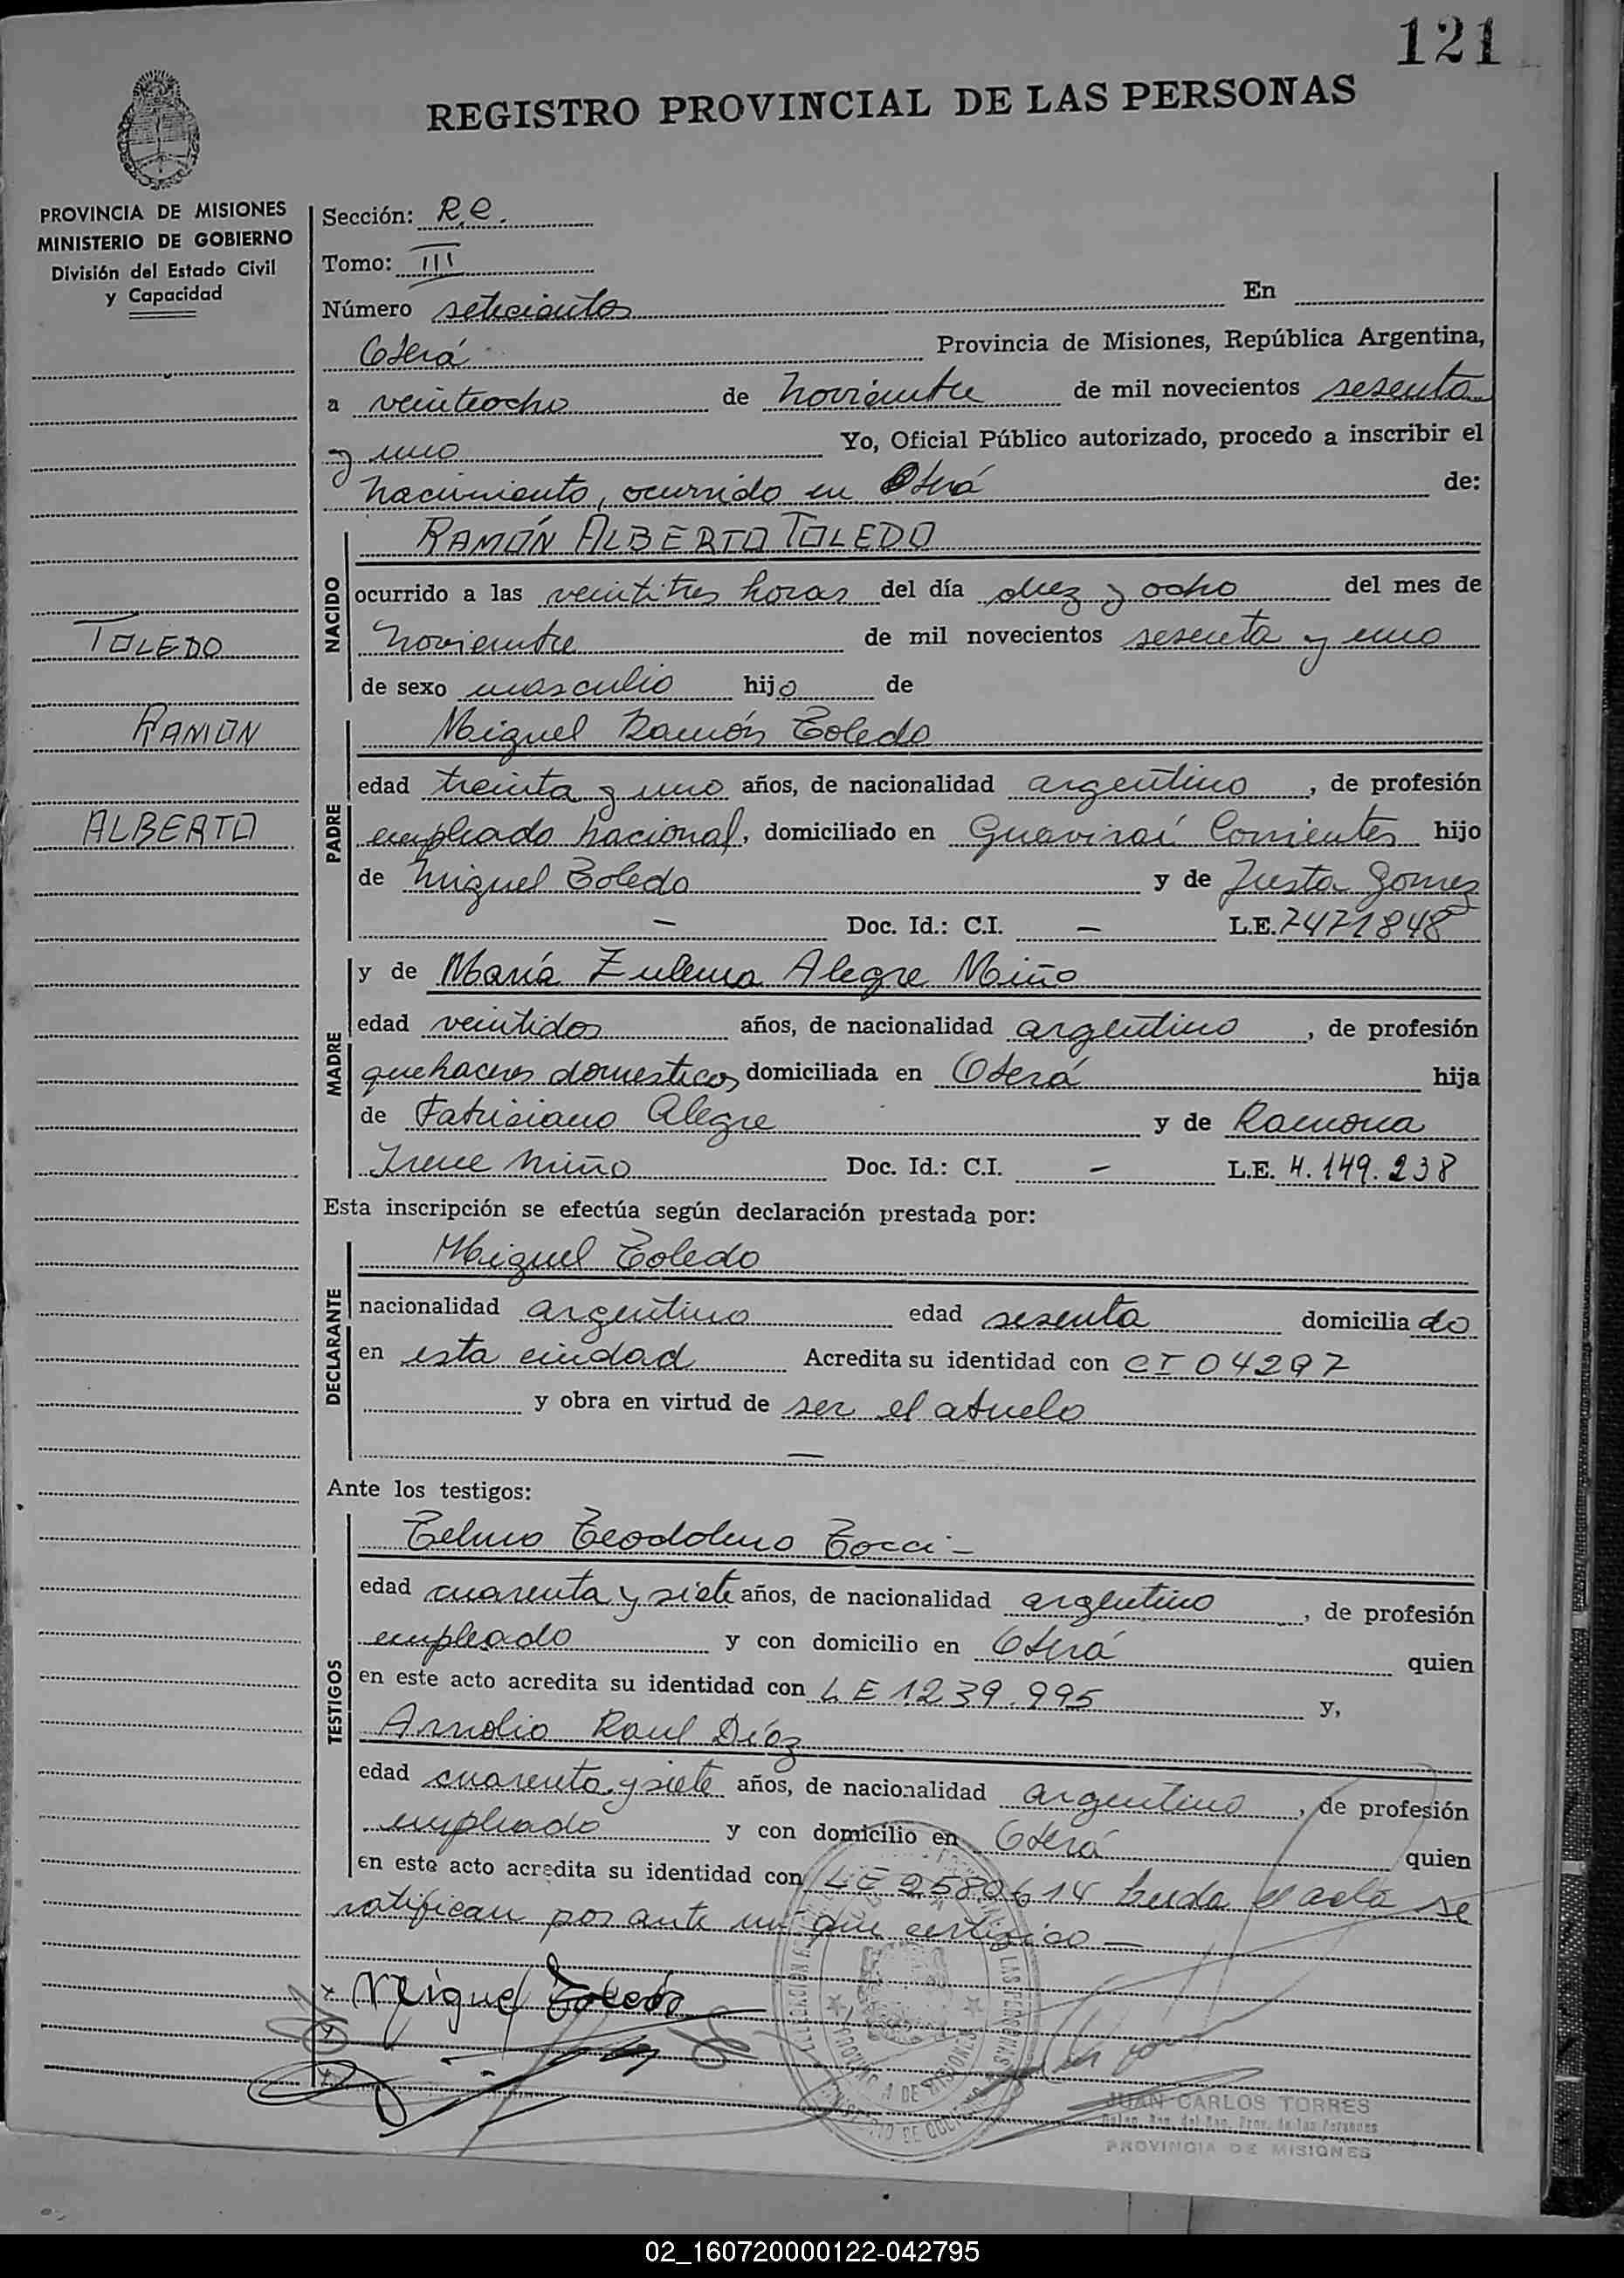 121
REGISTRO PROVINCIAL DE LAS PERSONAS
PROVINCIA DE MISIONES
MINISTERIO DE GOBIERNO
División del Estado Civil
y Capacidad
TOLEDO
RAMON
ALBERTO
Sección: R.C.
Tomo: III
Número setecientos En
Oberá Provincia de Misiones, República Argentina,
a veinteocho de noviembre de mil novecientos sesenta
y uno Yo, Oficial Público autorizado, procedo a inscribir el
nacimiento, ocurrido en Oberá de:
NACIDO
RAMÓN ALBERTO TOLEDO
ocurrido a las veintitres horas del día diez y ocho del mes de
noviembre de mil novecientos sesenta y uno
de sexo masculio hijo de
PADRE
Miguel Ramón Toledo
edad treinta y uno años, de nacionalidad argentino, de profesión
empleado nacional, domiciliado en Guaviraí Corrientes hijo
de Miguel Toledo y de Justa Gomez
— Doc. Id.: C.I. — L.E. 7471848
MADRE
y de María Zulema Alegre Miño
edad veintidos años, de nacionalidad argentino, de profesión
quehaceres domesticos domiciliada en Oberá hija
de Patriciano Alegre y de Ramona
Irene Miño Doc. Id.: C.I. — L.E. 4.149.238
Esta inscripción se efectúa según declaración prestada por:
DECLARANTE
Miguel Toledo
nacionalidad argentino edad sesenta domiciliado
en esta ciudad Acredita su identidad con CI 04297
y obra en virtud de ser el abuelo
—
Ante los testigos:
TESTIGOS
Telmo Teodolino Tocci -
edad cuarenta y siete años, de nacionalidad argentino, de profesión
empleado y con domicilio en Oberá quien
en este acto acredita su identidad con LE 1.239.995 y,
Arnolio Raul Díaz
edad cuarenta y siete años, de nacionalidad argentino, de profesión
empleado y con domicilio en Oberá quien
en este acto acredita su identidad con LE 2580614 Leida el acta se
ratifican por ante mí que certifico —
Miguel Toledo
JUAN CARLOS TORRES
PROVINCIA DE MISIONES
02_160720000122-042795